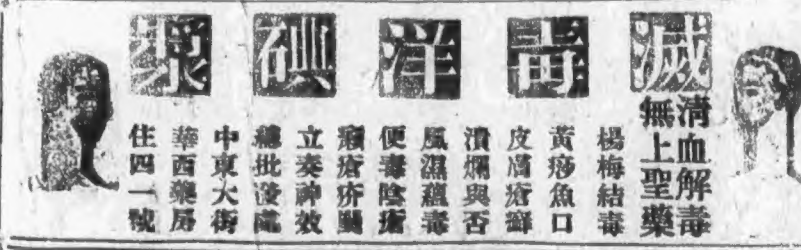 滅毒洋碘漿
清血解毒
無上聖藥
楊梅結毒
黃痧魚口
皮膚瘡癬
潰爛與否
風濕蘊毒
便毒陰瘡
瘡疥
立奏神效
總批發處
中東大街
華西藥房
住四一號